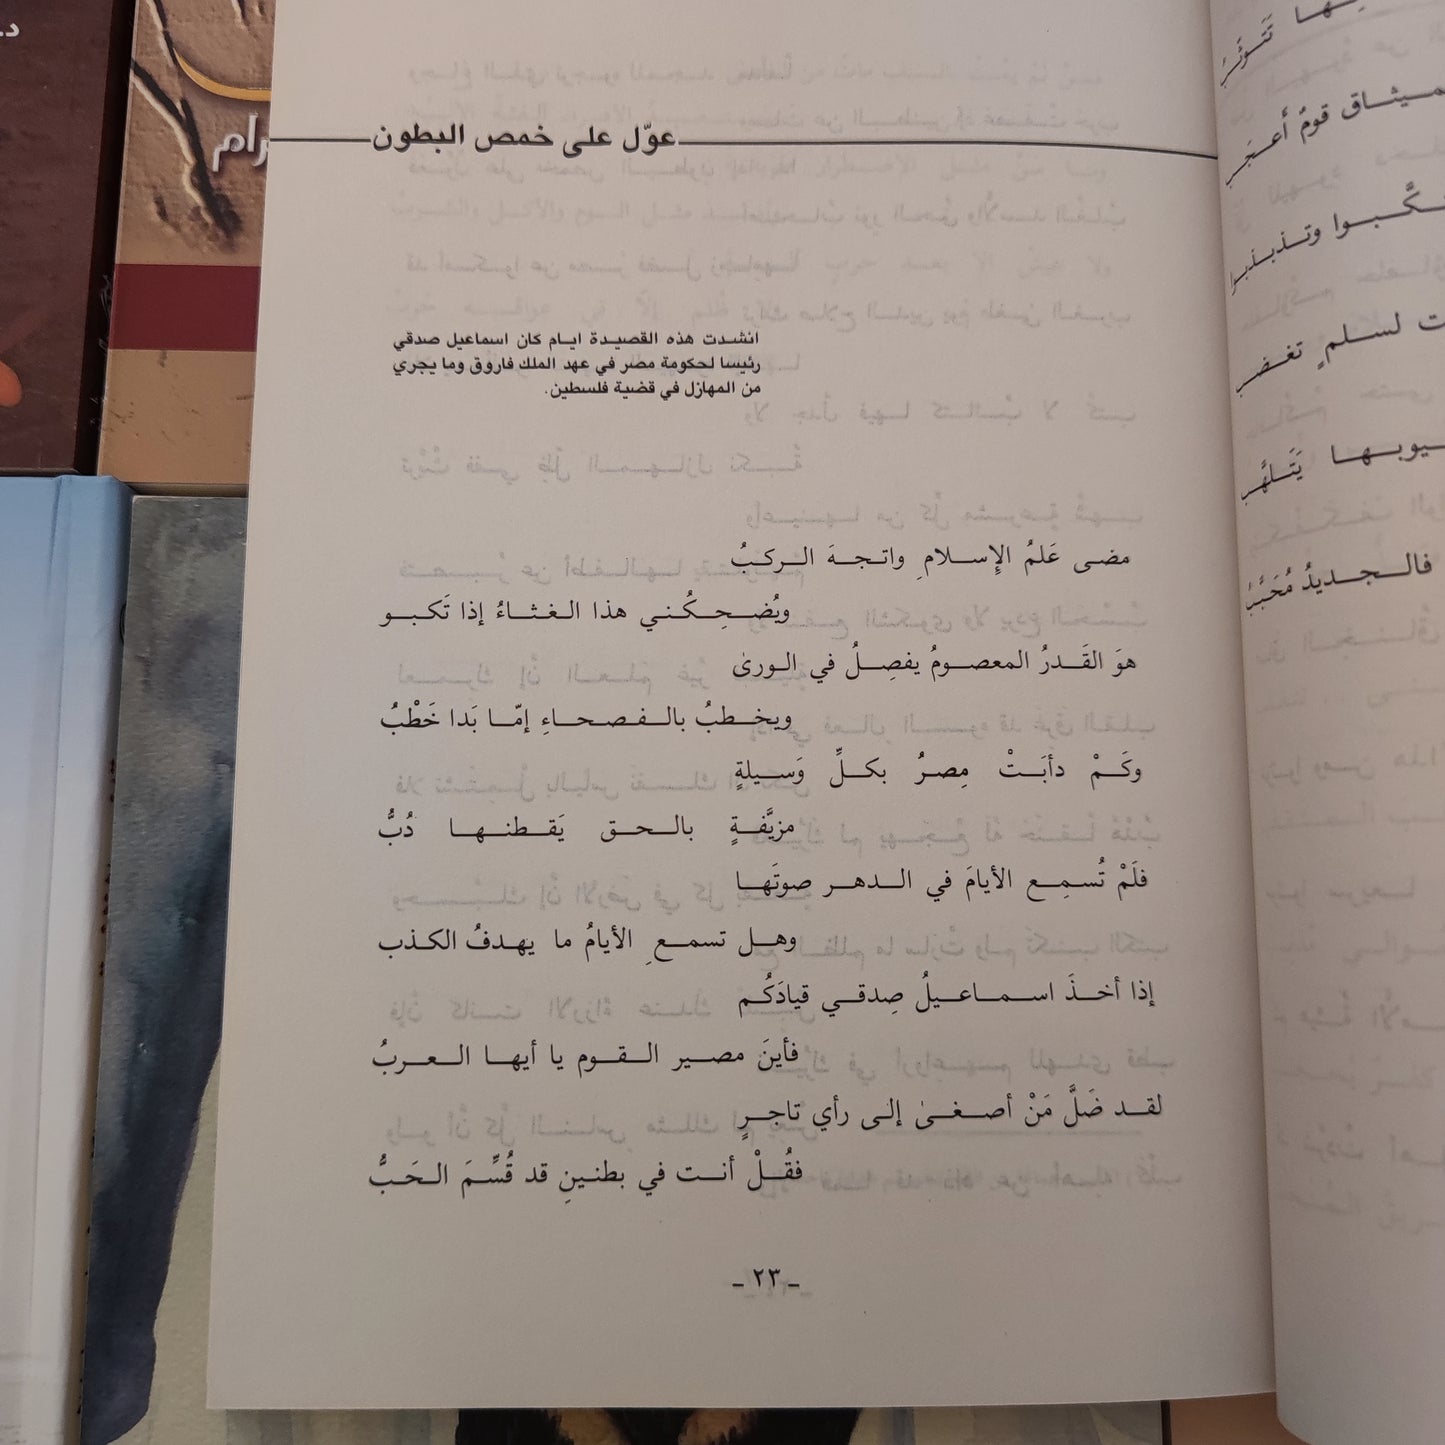 عوّل على خمص البطون
انشدت هذه القصيدة ايام كان اسماعيل صدقي
رئيسا لحكومة مصر في عهد الملك فاروق وما يجري
من المهازل في قضية فلسطين.
مضى عَلمُ الإِسلامِ واتجهَ الركبُ
ويُضحِكُني هذا الغثاءُ إذا تَكبو
هوَ القَدرُ المعصومُ يفصِلُ في الورىٰ
ويخطبُ بالفصحاءِ إمّا بَدا خَطْبُ
وكَمْ دأبَتْ مِصرُ بكلِّ وَسيلةٍ
مزيَّفةٍ بالحق يَقطنها دُبُّ
فلَمْ تُسمِع الأيامَ في الدهر صوتَها
وهل تسمعِ الأيامُ ما يهدفُ الكذب
إذا أخذَ اسماعيلُ صِدقي قيادَكُم
فأينَ مصير القوم يا أيها العربُ
لقد ضَلَّ مَنْ أصغىٰ إلى رأي تاجرٍ
فقُلْ أنت في بطنينِ قد قُسِّمَ الحَبُّ
ـ ٢٣ ـ
تَتوثَّبُ
قومٌ أعجَبُ
وتذبذبوا
لسلمٍ تغضب
يَتَلهَّبُ
فالجديدُ مُحَبَّبُ